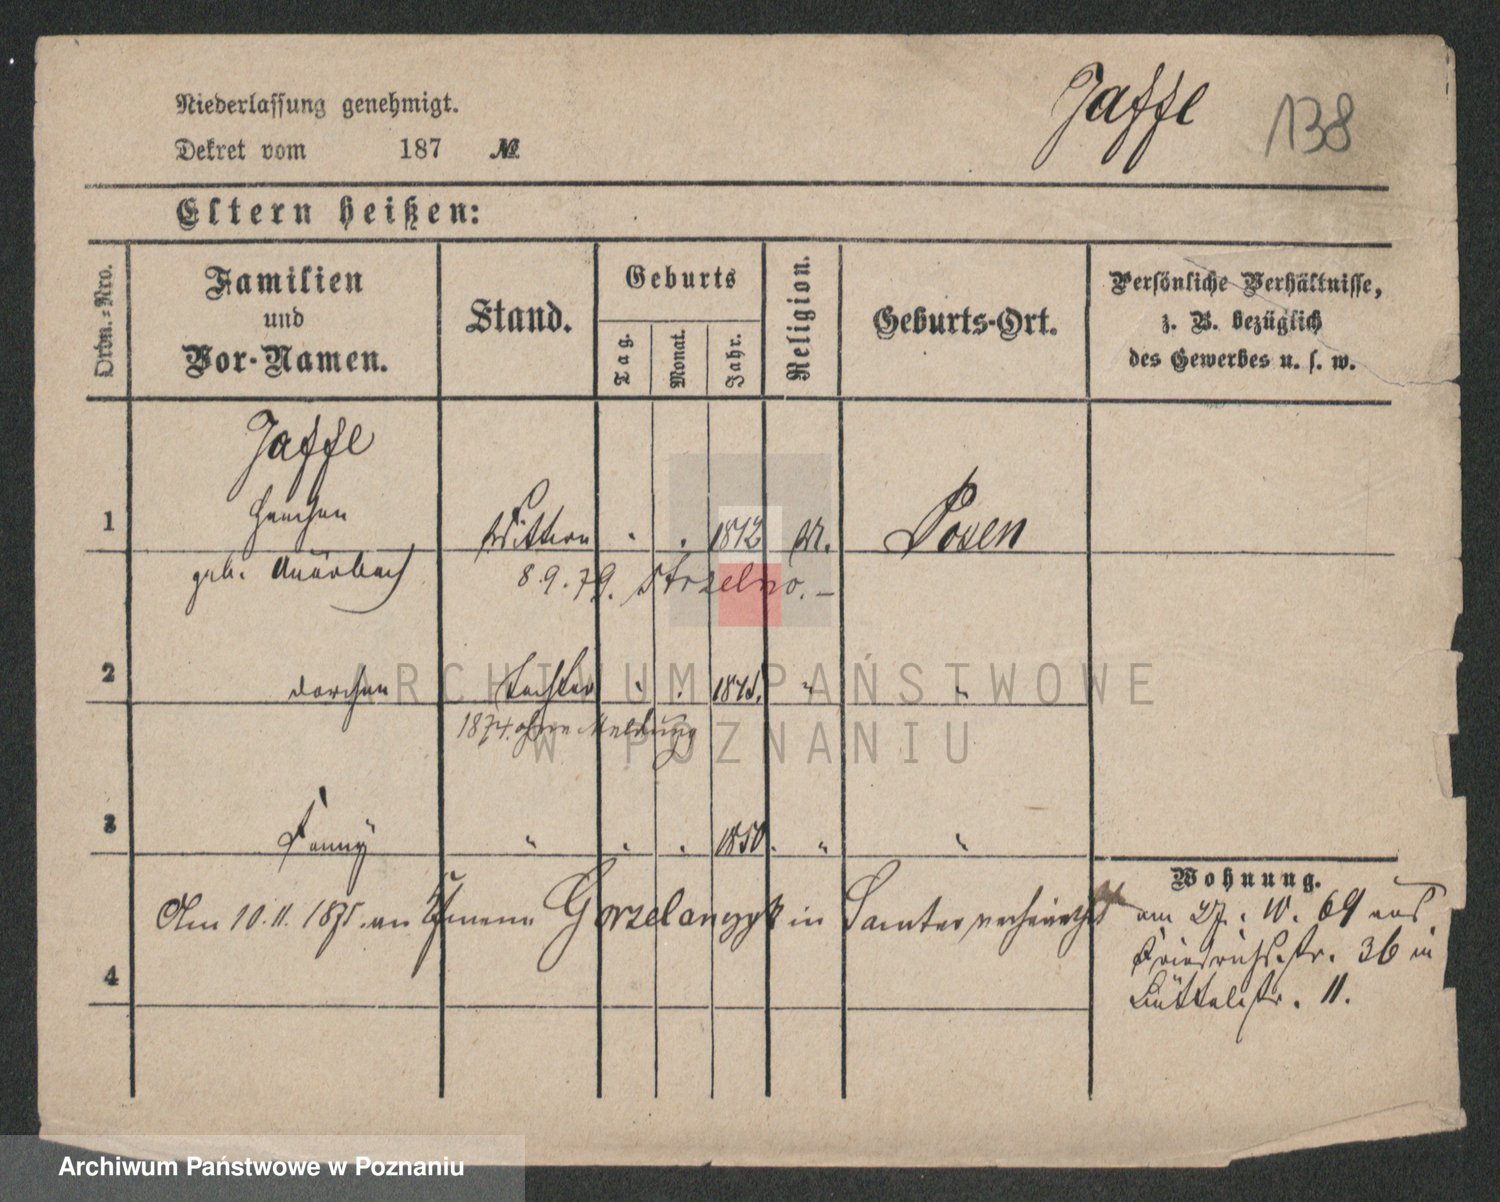 Niederlassung genehmigt.
Jaffe 138
Dekret vom 187 №
Eltern heißen:
Ordn.-Nro.
Familien und Vor-Namen.
Stand.
Geburts
Tag.
Monat.
Jahr.
Religion.
Geburts-Ort.
Persönliche Verhältnisse,
z. B. bezüglich
des Gewerbes u. s. w.
Jaffe
1 Hanchen Wittwe 1812 M. Posen
geb. Auerbach 8.9.79. Strzelno. –
2 Dorchen Tochter 1845. " "
1874. ohne Meldung
3 Fanny " 1850. " "
Wohnung.
Am 10.11.1875. an Gorzelanczyk in Samter verheirathet
am 27. 10. 69 aus
Friedrichsstr. 36 in
Büttelstr. 11.
4
ARCHIWUM PAŃSTWOWE
W POZNANIU
Archiwum Państwowe w Poznaniu